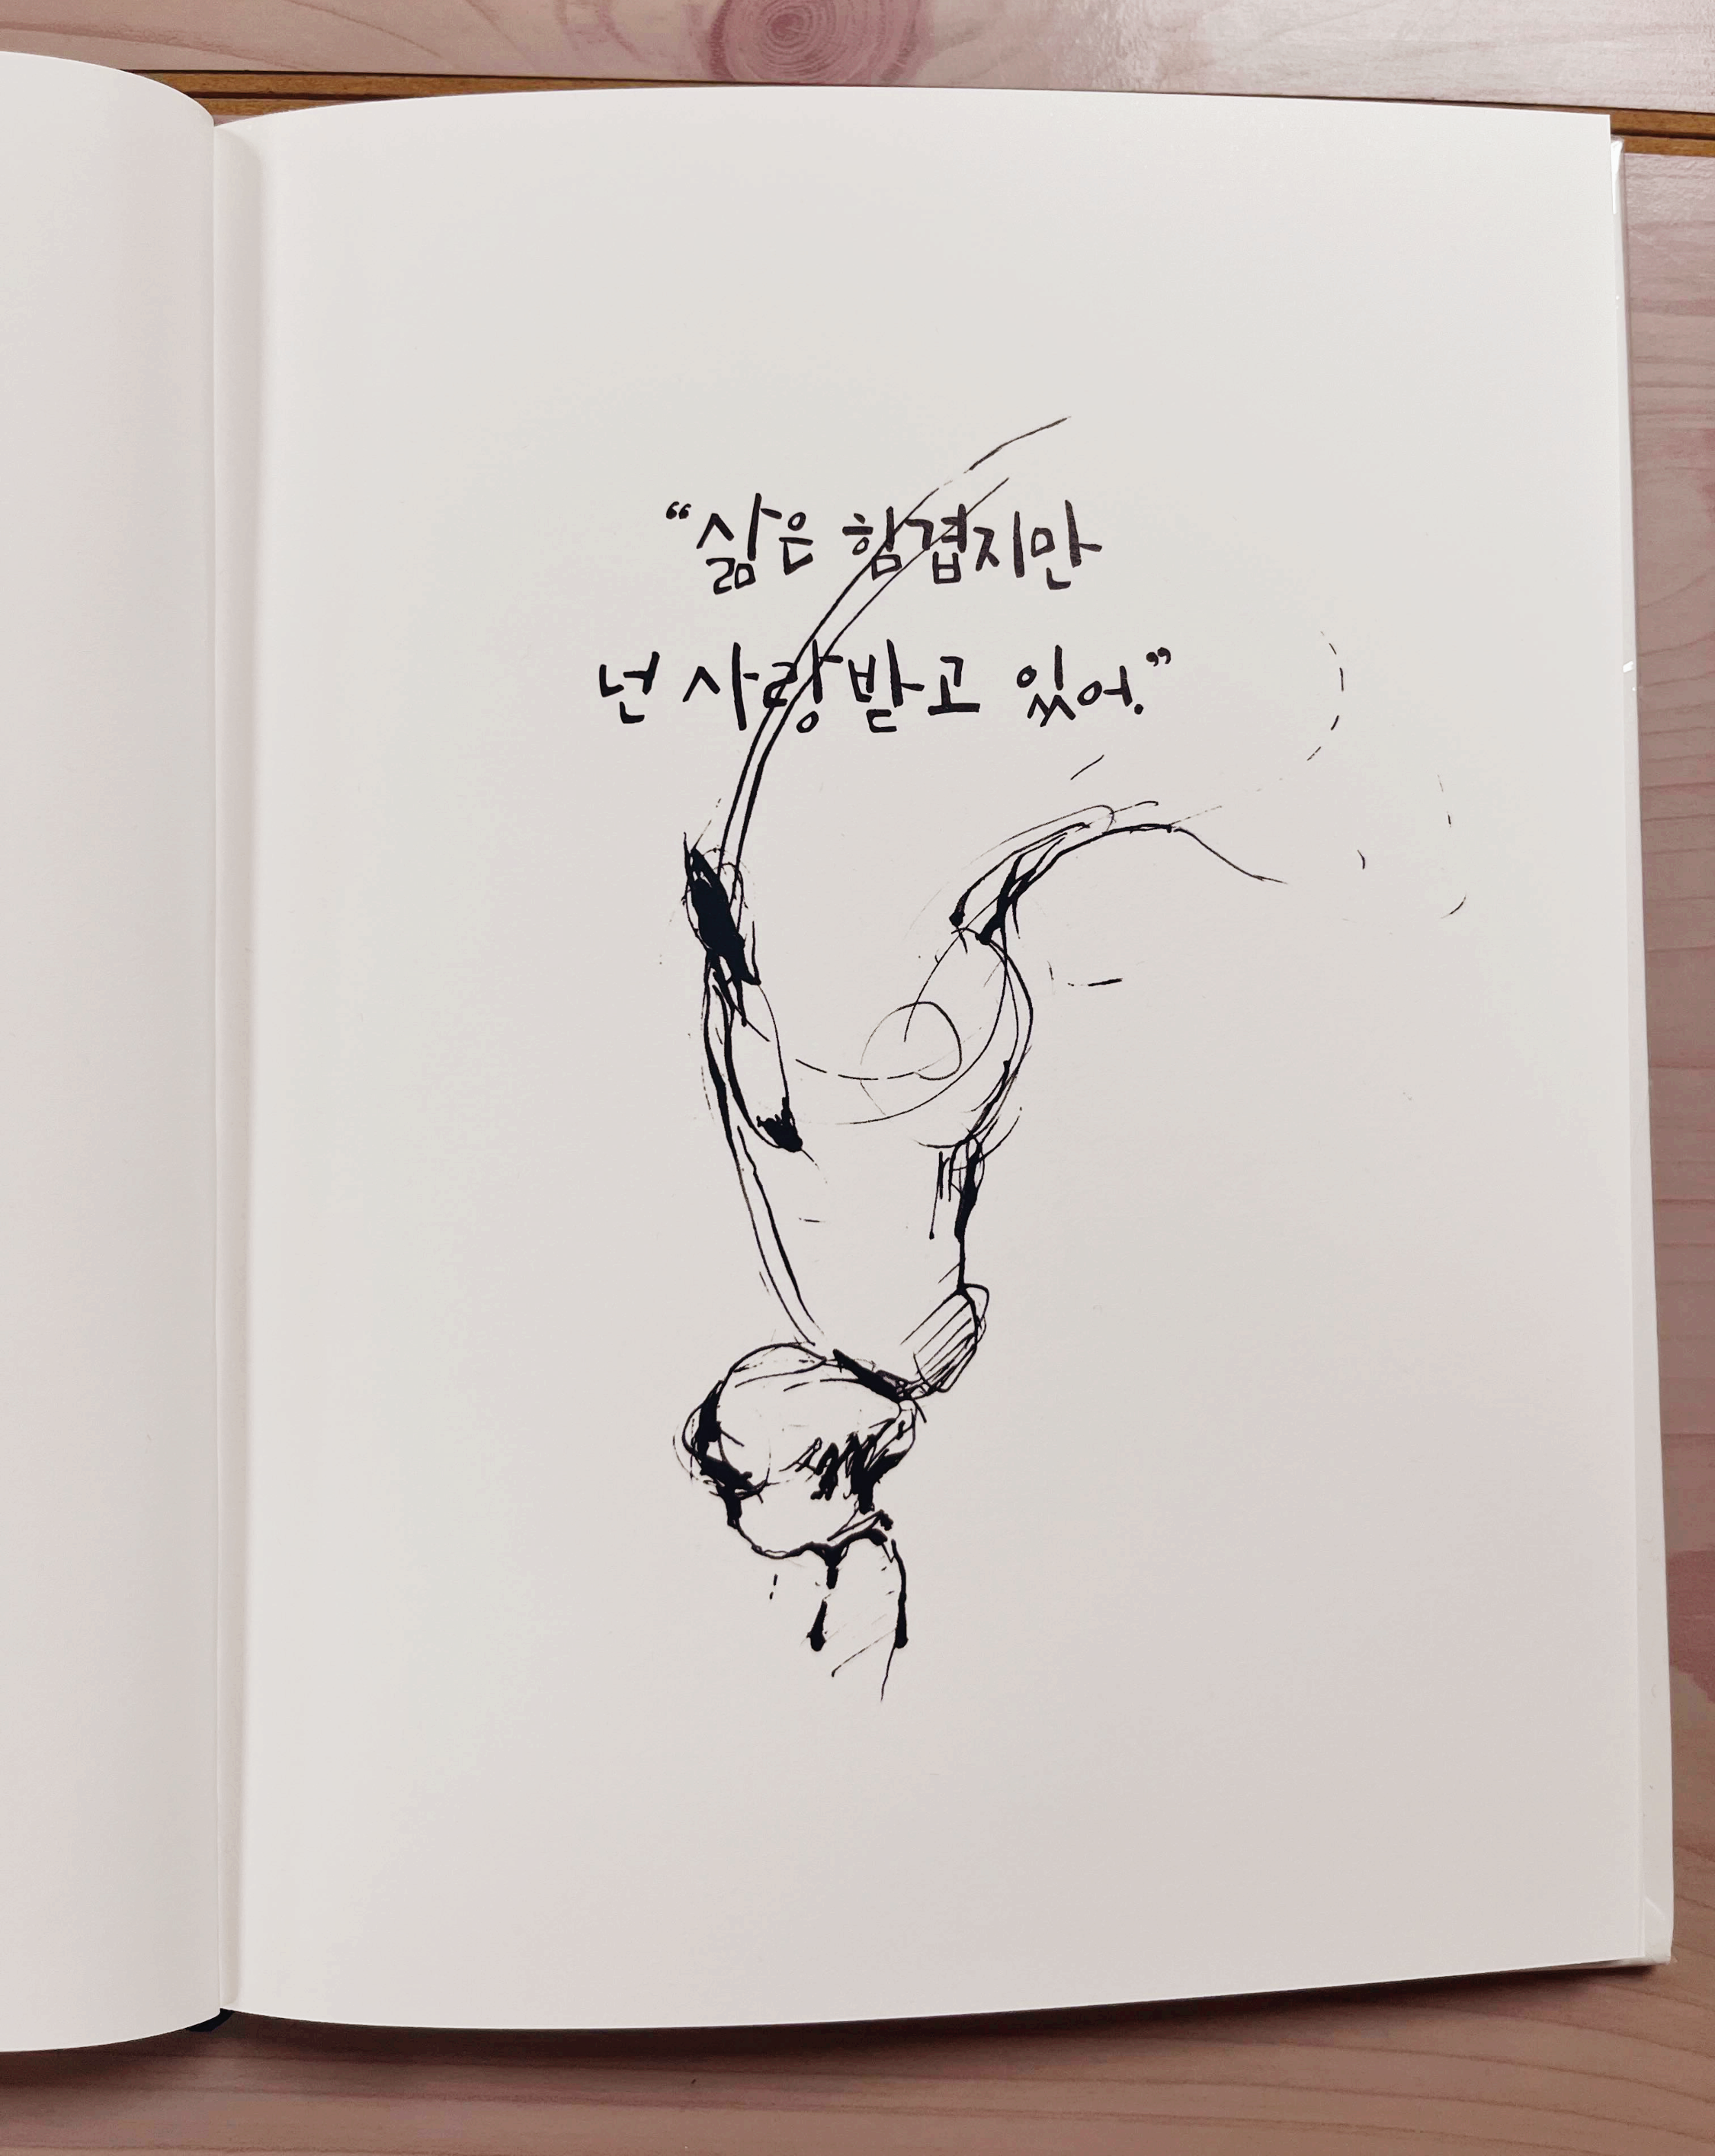 “삶은 힘겹지만
넌 사랑받고 있어.”